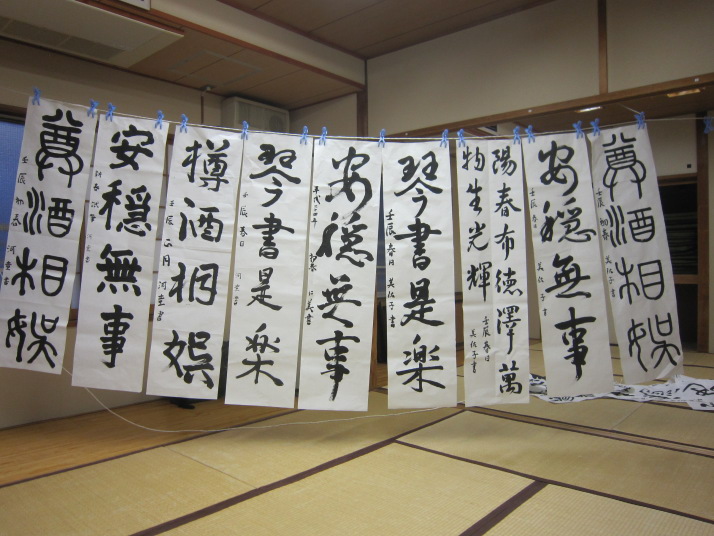 尊酒相娯
壬辰初春 美佐子書
安穏無事
壬辰春日 美佐子書
陽春布徳澤萬
物生光輝
壬辰春日 美佐子書
琴書是楽
壬辰春月 美佐子書
安穏無事
平成二四年 初春
琴書是楽
壬辰春日
樽酒相娯
壬辰正月
安穏無事
尊酒相娯
壬辰初春